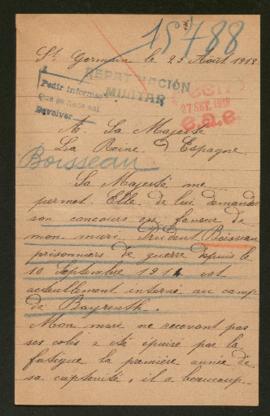 15788
St Germain le 23 Août 1918
REPATRIACIÓN
MILITAR
Pedir informes
Que se
Devolver
27 SEP. 1918
A Sa Majesté
La Reine d'Espagne
Boisseau
Sa Majesté me
permet Elle de lui demander
son concours en faveur de
mon mari Prudent Boisseau
prisonniers de guerre depuis le
10 Septembre 1914 est
actuellement interné au camp
de Bayreuth.
Mon mari ne recevant pas
ses colis a été épuisé par la
fatigue la première année de
sa captivité, il a beaucoup